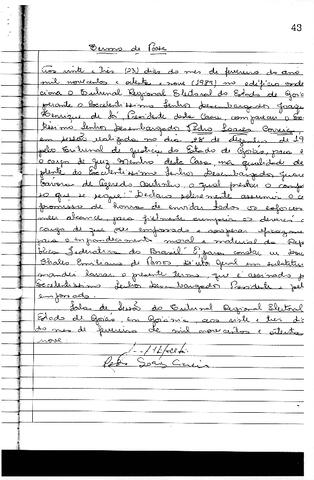 43
Termo de Posse
Aos vinte e três (23) dias do mês de fevereiro do ano
mil novecentos e oitenta e nove (1989) no edifício onde
ciona o Tribunal Regional Eleitoral do Estado de Goiá
perante o Excelentíssimo Senhor Desembargador
Henrique de Sá Presidente desta Casa, compareceu o Ex
tíssimo Senhor Desembargador Pedro Soares Correia
em sessão realizada no dia 28 de dezembro de 19
pelo Tribunal de Justiça do Estado de Goiás, para e
o cargo de Juiz Membro desta Casa, na qualidade de
plente do Excelentíssimo Senhor Desembargador
de Azeredo Coutinho, o qual prestou o comp
so que se segue: "Declaro solenemente assumir o c
promisso de honra de envidar todos os esforços
meu alcance para fielmente cumprir os deveres
cargo de que sou empossado e cooperar eficazmente
para o engrandecimento moral e material da Rep
blica Federativa do Brasil". E para constar eu
Diretor Geral em substitui
mandei lavrar o presente termo, que é assinado p
Excelentíssimo Senhor Desembargador Presidente e pel
empossado.
Sala de Sessão do Tribunal Regional Eleitoral
Estado de Goiás, em Goiânia, aos vinte e três di
do mês de fevereiro de mil novecentos e oitenta
nove
Pedro Soares Correia